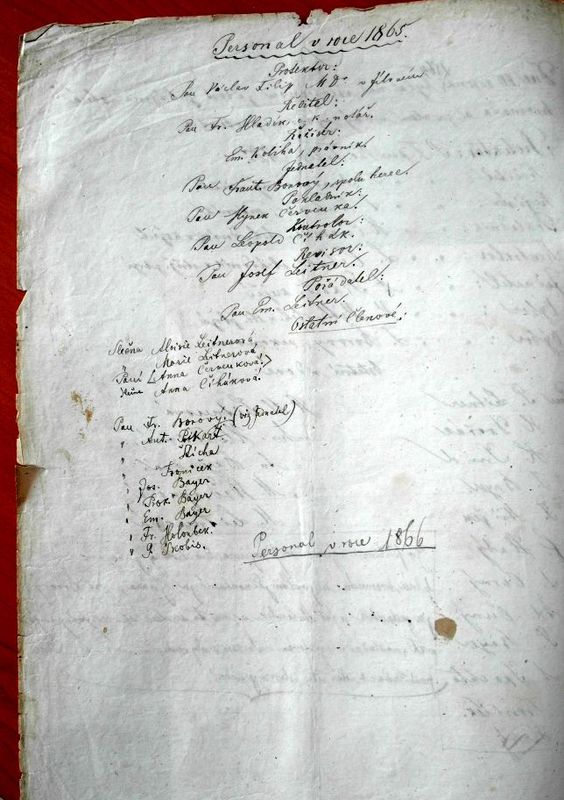 Personal v roce 1865.
Protektor:
Pan Václav Filip M D
Ředitel:
Pan Fr. Hladík, c. k. notář.
Režisér:
Em. Kobliha, právník.
Jednatel:
Pan Frant. Borový, spolu herec.
Pokladník:
Pan Hynek Červenka.
Kontrolor:
Pan Leopold Čihák.
Revisor:
Pan Josef Leitner.
Pořadatel:
Pan Em. Leitner.
Ostatní Členové:
Slečna Aloisie Leitnerová,
" Marie Leitnerová
Paní (Anna Červenková!)
Slečna Anna Čiháková!
Pan Fr. Borový. (viz Jednatel)
" Ant. Pekař
" Sticha
" Froniček
" Jos. Bayer
" Prok. Bayer
" Em. Bayer
" Fr. Holoubek.
" Skobis.
Personal v roce 1866